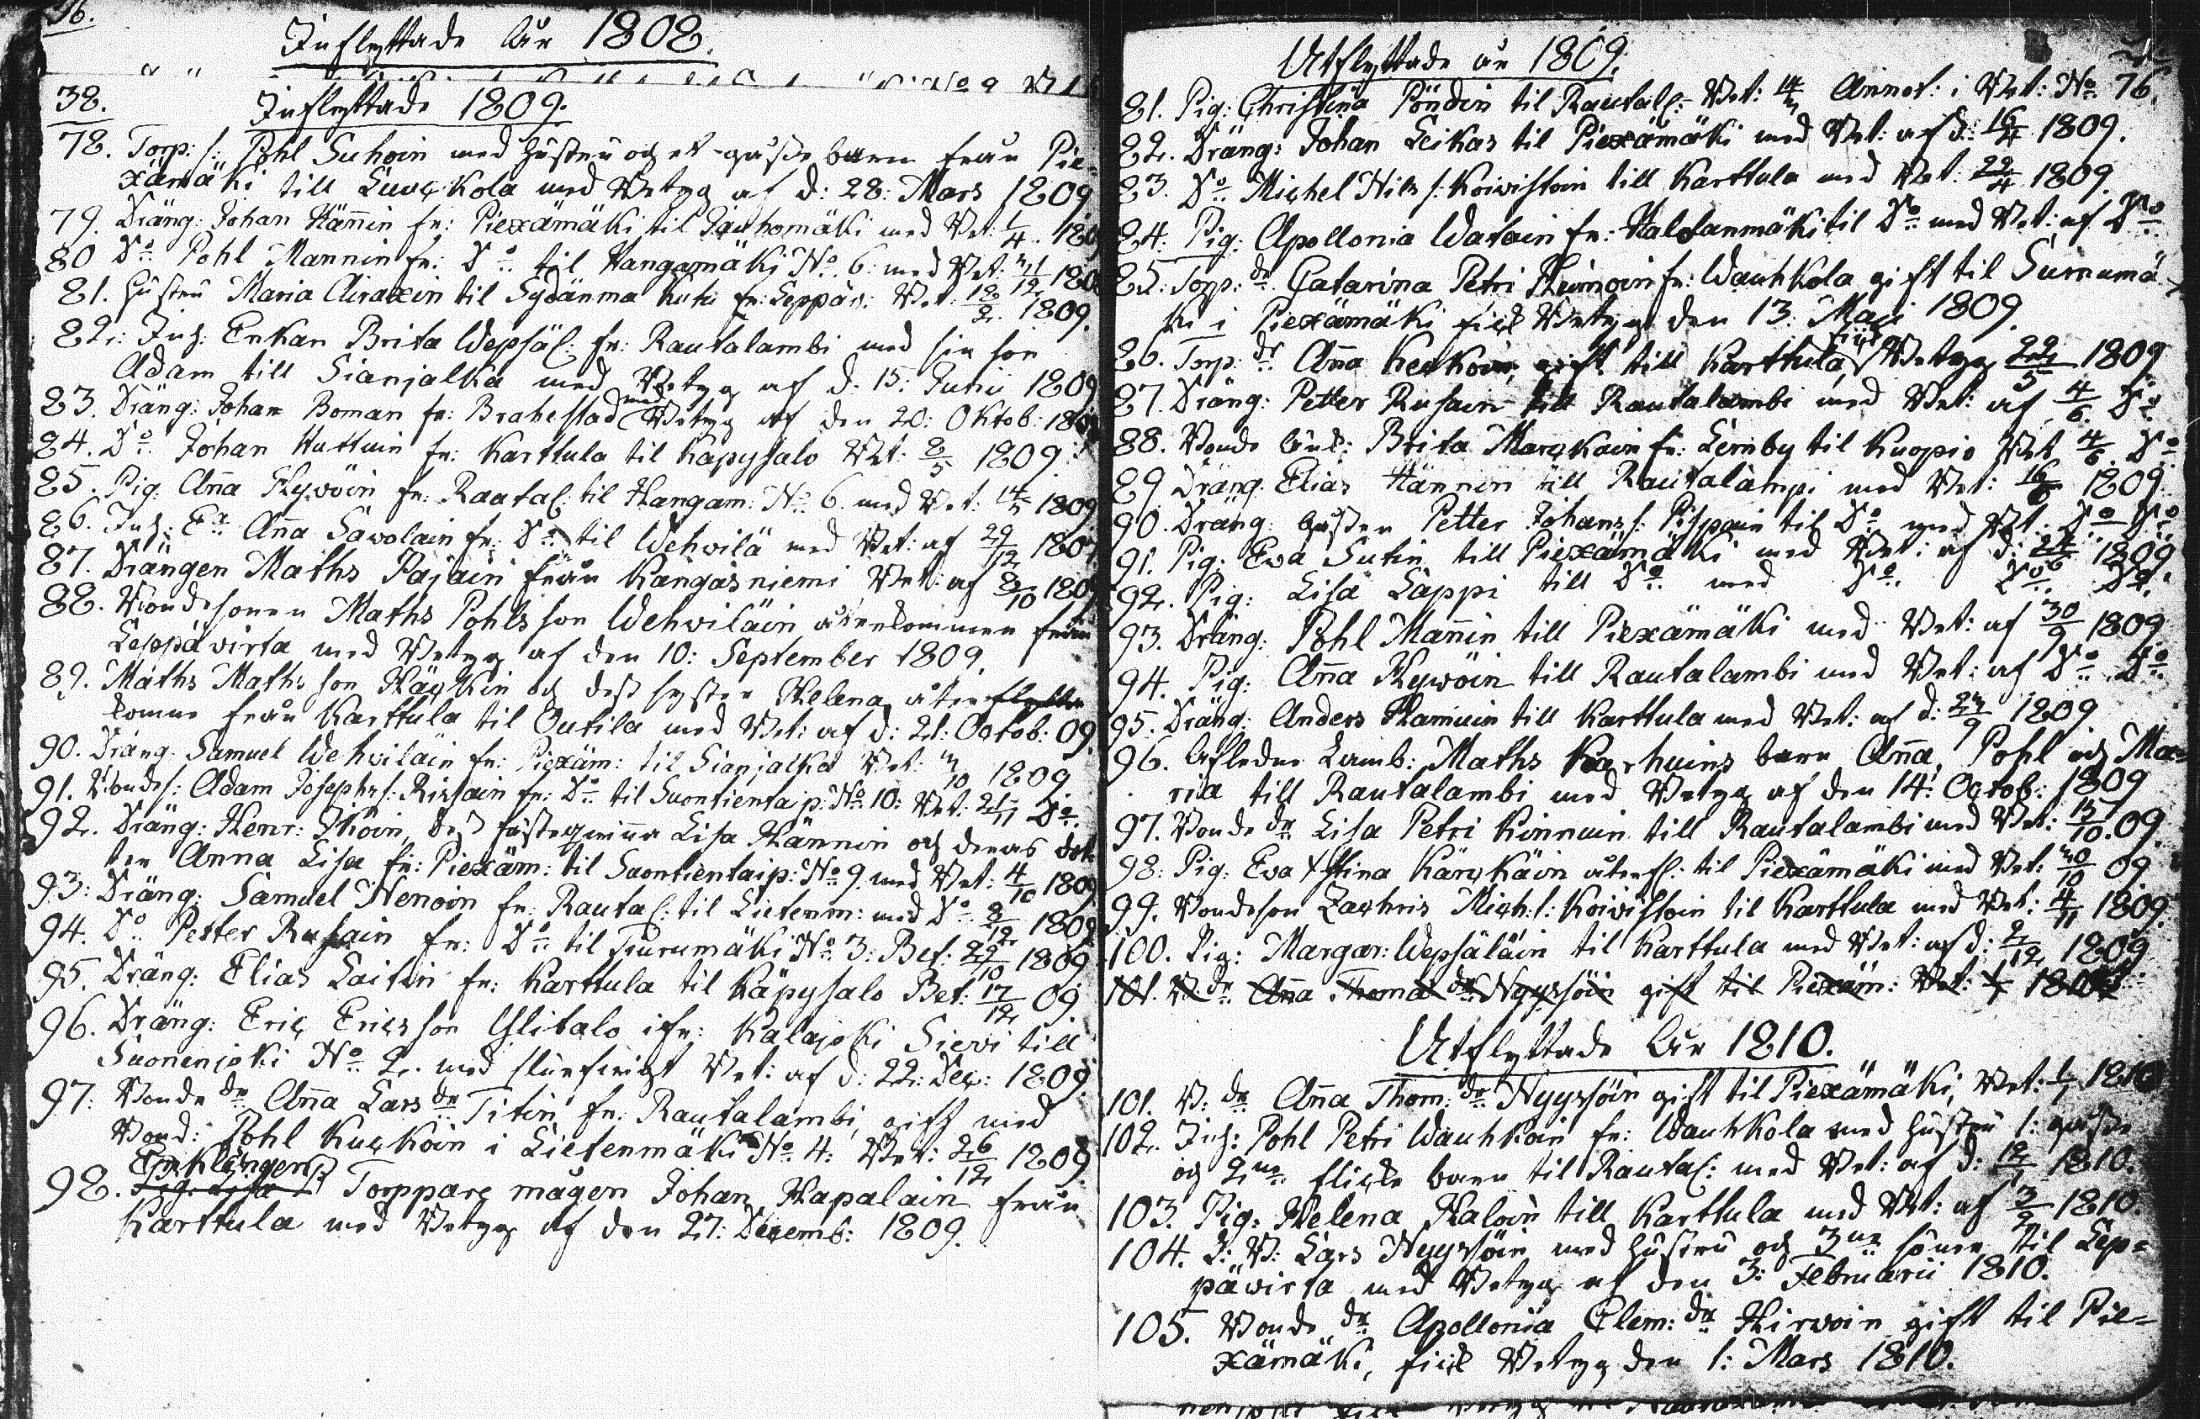 36.
Inflyttade År 1808.
38.
Inflyttade 1809.
78. Torp: s: Pohl Suhoin med hustru och et gosse barn från Pie-
xämäki till Suoç Kola med Betyg af d: 28: Mars 1809
79. Dräng: Johan Hänin fr: Piexämäki til Jauhomäki med Bet: 1/4. 180
80 Do Pohl Mannin fr: Do til Hangamäki No. 6: med Bet:
81. Hustru Maria Airaxin til Sydänma fr: Leppäv: Bet: 1809.
82. Inh: Enkan Brita Wepsäl: fr: Rautalambi med sin son
Adam till Sianjalka med Betyg af d. 15: Junii 1809
83. Dräng: Johan Boman fr: Brahestad med Betyg af den 20: Oktob: 180
84. Do Johan Huttuin fr: Karttula til Käpysalo Bet: 8/5 1809
85. Pig: Aña Hywöin fr: Rautal: til Hangam: No 6. med Bet: 1809
86. Inh: Ea Aña Sawolain fr: Do til Wehvilä med Bet: af 29/12 180
87. Drängen Maths Pajain från Kangasniemi Bet: af 8/10 180
88. Bondesonen Maths Pohlsson Wehviläin återkommen från
Leppävirta med Betyg af den 10: September 1809.
89. Maths Mathsson Häyrkin och dess syster Helena återflytta
komne från Karttula til Outila med Bet: af d: 21: Octob: 09.
90. Dräng: Samuel Wehviläin fr: Piexäm: til Sianjalka Bet: 1809
91. Bondes: Adam Josephs s: Rissain fr: Do til Suontientaip: No 10: Bet: 21/11 Do
92. Dräng: Henr: Iköin, dess fästeqwinna Lisa Hännin och deras dot-
ter Anna Lisa fr: Piexäm: til Suontientaip: No 9. med Bet: 4/10 1809
93: Dräng: Samuel Nenoin fr: Rautal: til Lietenm: med Do 8/12 1809
94. Do Petter Rusain fr: Do til Surumäki No 3: Bet: 29/10 1809
95. Dräng: Elias Laitin fr: Karttula til Käpysalo Bet: 17/12 09.
96. Dräng: Eriç Ericsson Ylitalo ifr: Kalajoki Sievi till
Suonenjoki No 2. med Bet: af d: 22: Deç: 1809.
97: Bonde dr Aña Lars dr Titin fr: Rautalambi, gift med
Bond: Pohl Kuçkoin i Lietenmäki No 4: Bet: 26/12 1809.
98. Pig: Lisa Enklingen Torppare mågen Johan Hapalain från
Karttula med Betyg af den 27: Decemb: 1809.
Utflyttade år 1809.
81. Pig: Christina Pöndin til Rautal: Bet: Annot: i Bet: No 76.
82. Dräng: Johan Leikas til Piexämäki med Bet: af d: 16/4 1809.
83. Do Michel Nils s: Koivistoin till Karttula med Bet: 22/4 1809
84. Pig: Apollonia Watain fr: Halolanmäki til Do med Bet: af Do
85. Torp: dr Catarina Petri Heimoin fr: Wauhkola gift til Surnumä-
ki i Piexämäki fick Betyg den 13: Maji 1809.
86. Torp: dr Aña Keskoin, gift till Karttula, fick Betyg 22/5 1809
87. Dräng: Petter Rusain till Rautalambi med Bet: af 4/6 Do
88. Bonde Brita Marçkain fr: Lernby til Kuopio Bet 4/6 Do
89 Dräng: Elias Hännin till Rautalampi med Bet: 16/6 1809
90. Dräng gossen Petter Johans s: Pippoin til Do med Bet: Do Do
91. Pig: Eva Sutin till Piexämäki med Bet: af d: 24/6 1809
92. Pig: Lisa Lappi till Do med Do Do Do
93. Dräng: Pohl Mañin till Piexämäki med Bet: af 30/9 1809
94. Pig: Aña Hywöin till Rautalambi med Bet: af Do Do
95. Dräng: Anders Hamuin till Karttula med Bet: af d: 1809
96. Afledne Lamb: Maths Karhuins barn Aña, Pohl och Ma-
ria till Rautalambi med Betyg af den 14: Octob: 1809
97. Bonde dr Lisa Petri Kinnuin till Rautalambi med Bet: 15/10. 09
98: Pig: Eva Stina Kärçkäin återfl: til Piexämäki med Bet: 09
99. Bondeson Zachris Mich: s: Koivistoin til Karttula med Bet: 4/11 1809
100. Pig: Margar: Wepsäläin til Karttula med Bet: af d: 2/12 1809
101. B dr Aña Thoma dr Nyyssöin gift til Piexäm: Bet: 1810
Utflyttade År 1810.
101. B: dr Aña Thom: dr Nyyssöin gift til Piexämäki, Bet: 1810
102. Inh: Pohl Petri Wauhkoin fr: Wauhkola med hustru 1: gosse
och 2ne flicke barn til Rautal: med Bet: af d: 1810.
103. Pig: Helena Haloin till Karttula med Bet: af 3/2 1810.
104. L: B: Lars Nyyssöin med hustru och 3ne söner til Lep-
pävirta med Betyg af den 3: Februarii 1810.
105. Bonde dr Apollonia Clem: dr Hirvoin gift til Pie-
xämäki, fick Betyg den 1: Mars 1810.